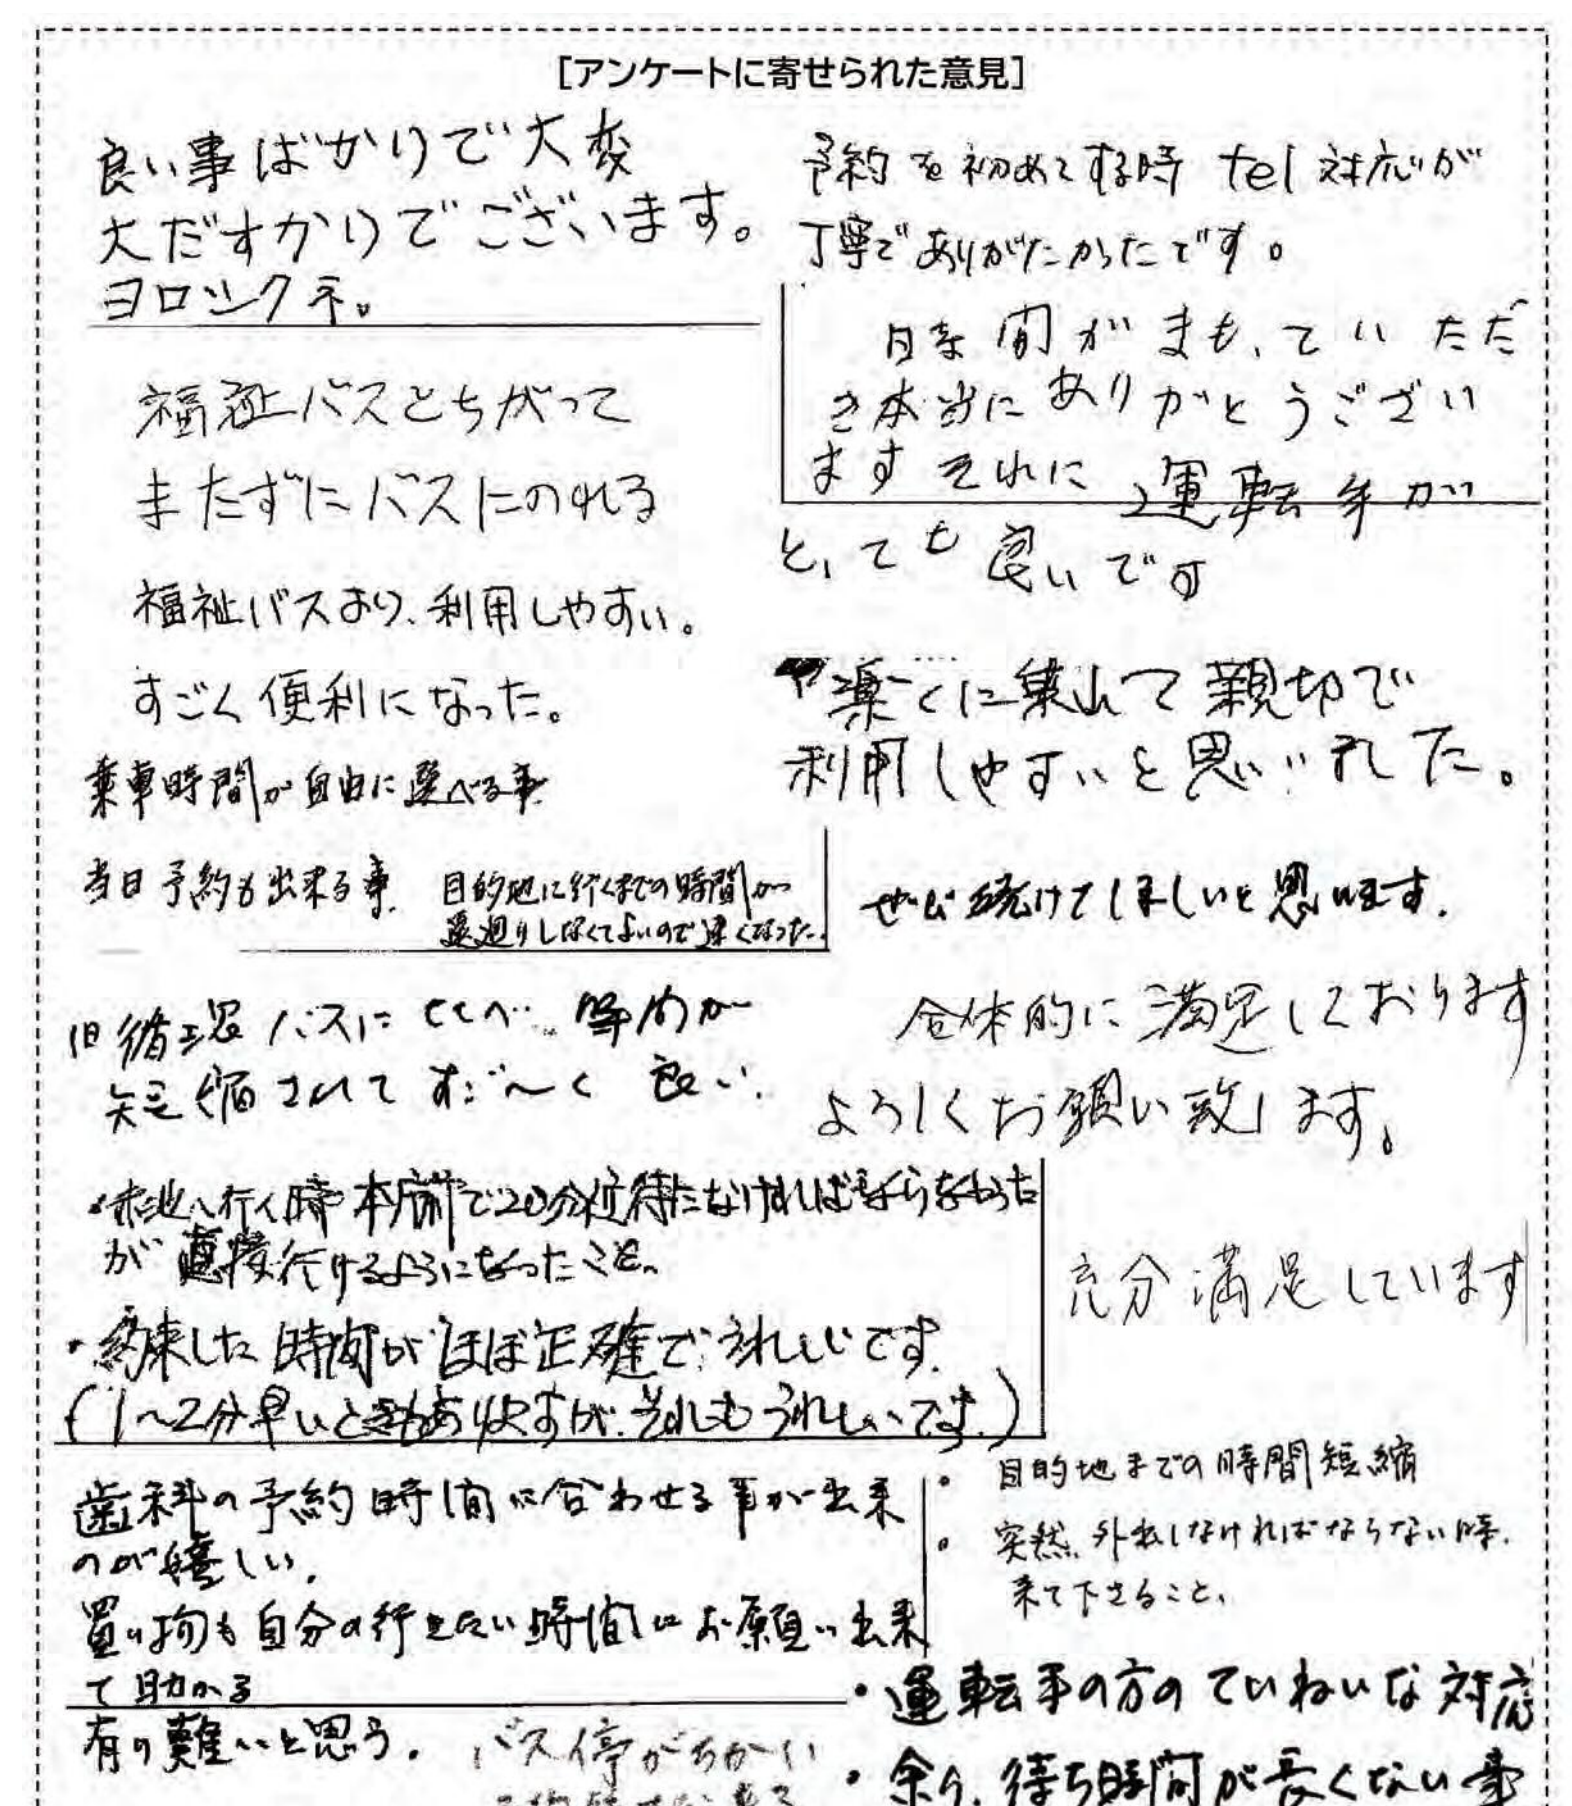 [アンケートに寄せられた意見]
良い事ばかりで大変
大だすかりでございます。
ヨロシクネ。
福祉バスとちがって
またずにバスにのれる
福祉バスより、利用しやすい。
すごく便利になった。
乗車時間が自由に選べる事
当日予約も出来る事
目的地に行くまでの時間が
遠廻りしなくてよいので速くなった。
旧循環バスにくらべ 時間が
短縮されて すご〜く 良い。
・赤池へ行く時 本庁前で20分近待たなければならなかった
が 直接行けるようになったこと。
・約束した時間がほぼ正確で、うれしいです。
(1〜2分早いときもありますが、それもうれしいです。)
歯科の予約時間に合わせる事が出来
のが嬉しい。
買い物も自分の行きたい時間にお願い出来
て助かる
有り難いと思う。
バス停がちかい
予約を初めてする時 tel 対応が
丁寧でありがたかったです。
時間がまもっていただ
き本当にありがとうござい
ます それに 運転手が
とっても 良いです
楽に乗れて親切で
利用しやすいと思いました。
ぜひ続けてほしいと思います。
全体的に満足しております
よろしくお願い致します。
充分満足しています
・ 目的地までの時間短縮
・ 突然、外出しなければならない時、
来て下さること、
・運転手の方のていねいな対応
・余り、待ち時間が長くない事